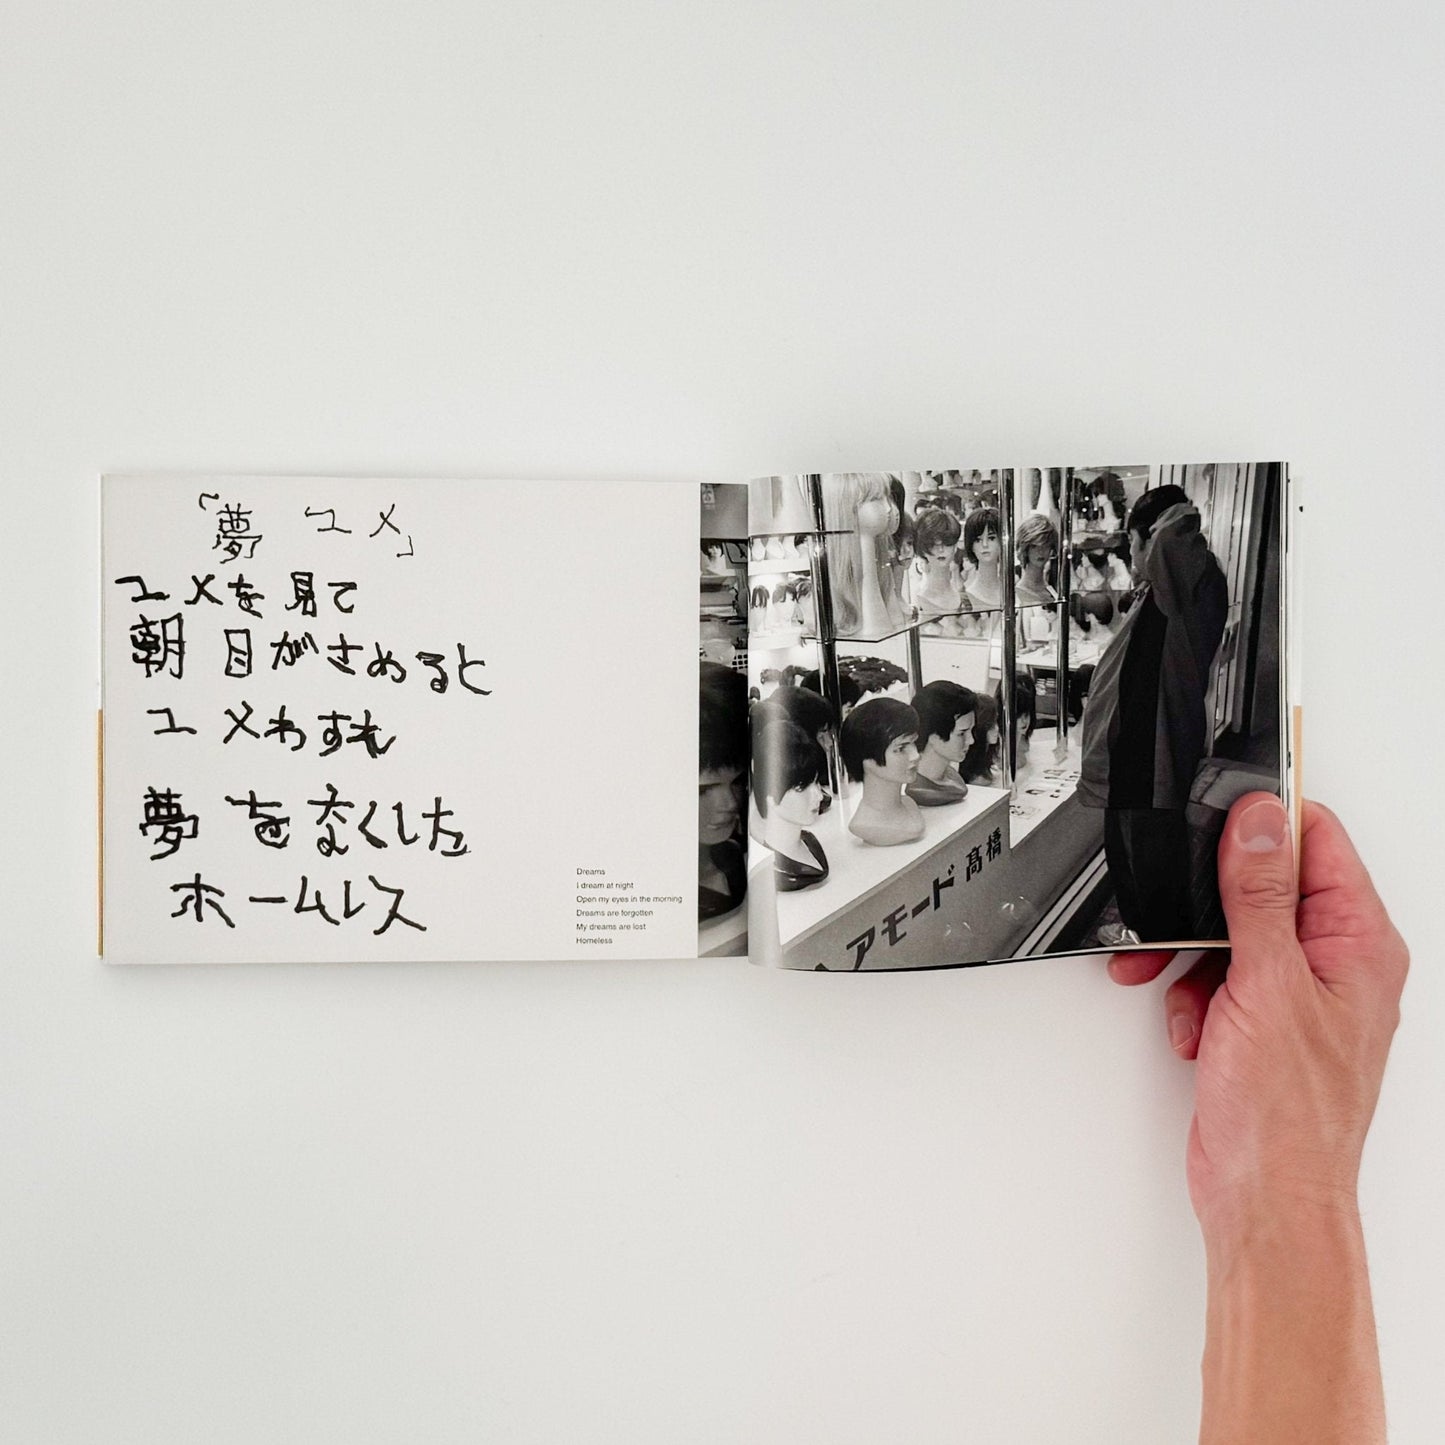 「夢 ユメ」
ユメを見て
朝 目がさめると
ユメわすれ
夢をなくした
ホームレス
Dreams
I dream at night
Open my eyes in the morning
Dreams are forgotten
My dreams are lost
Homeless
アモード 高橋